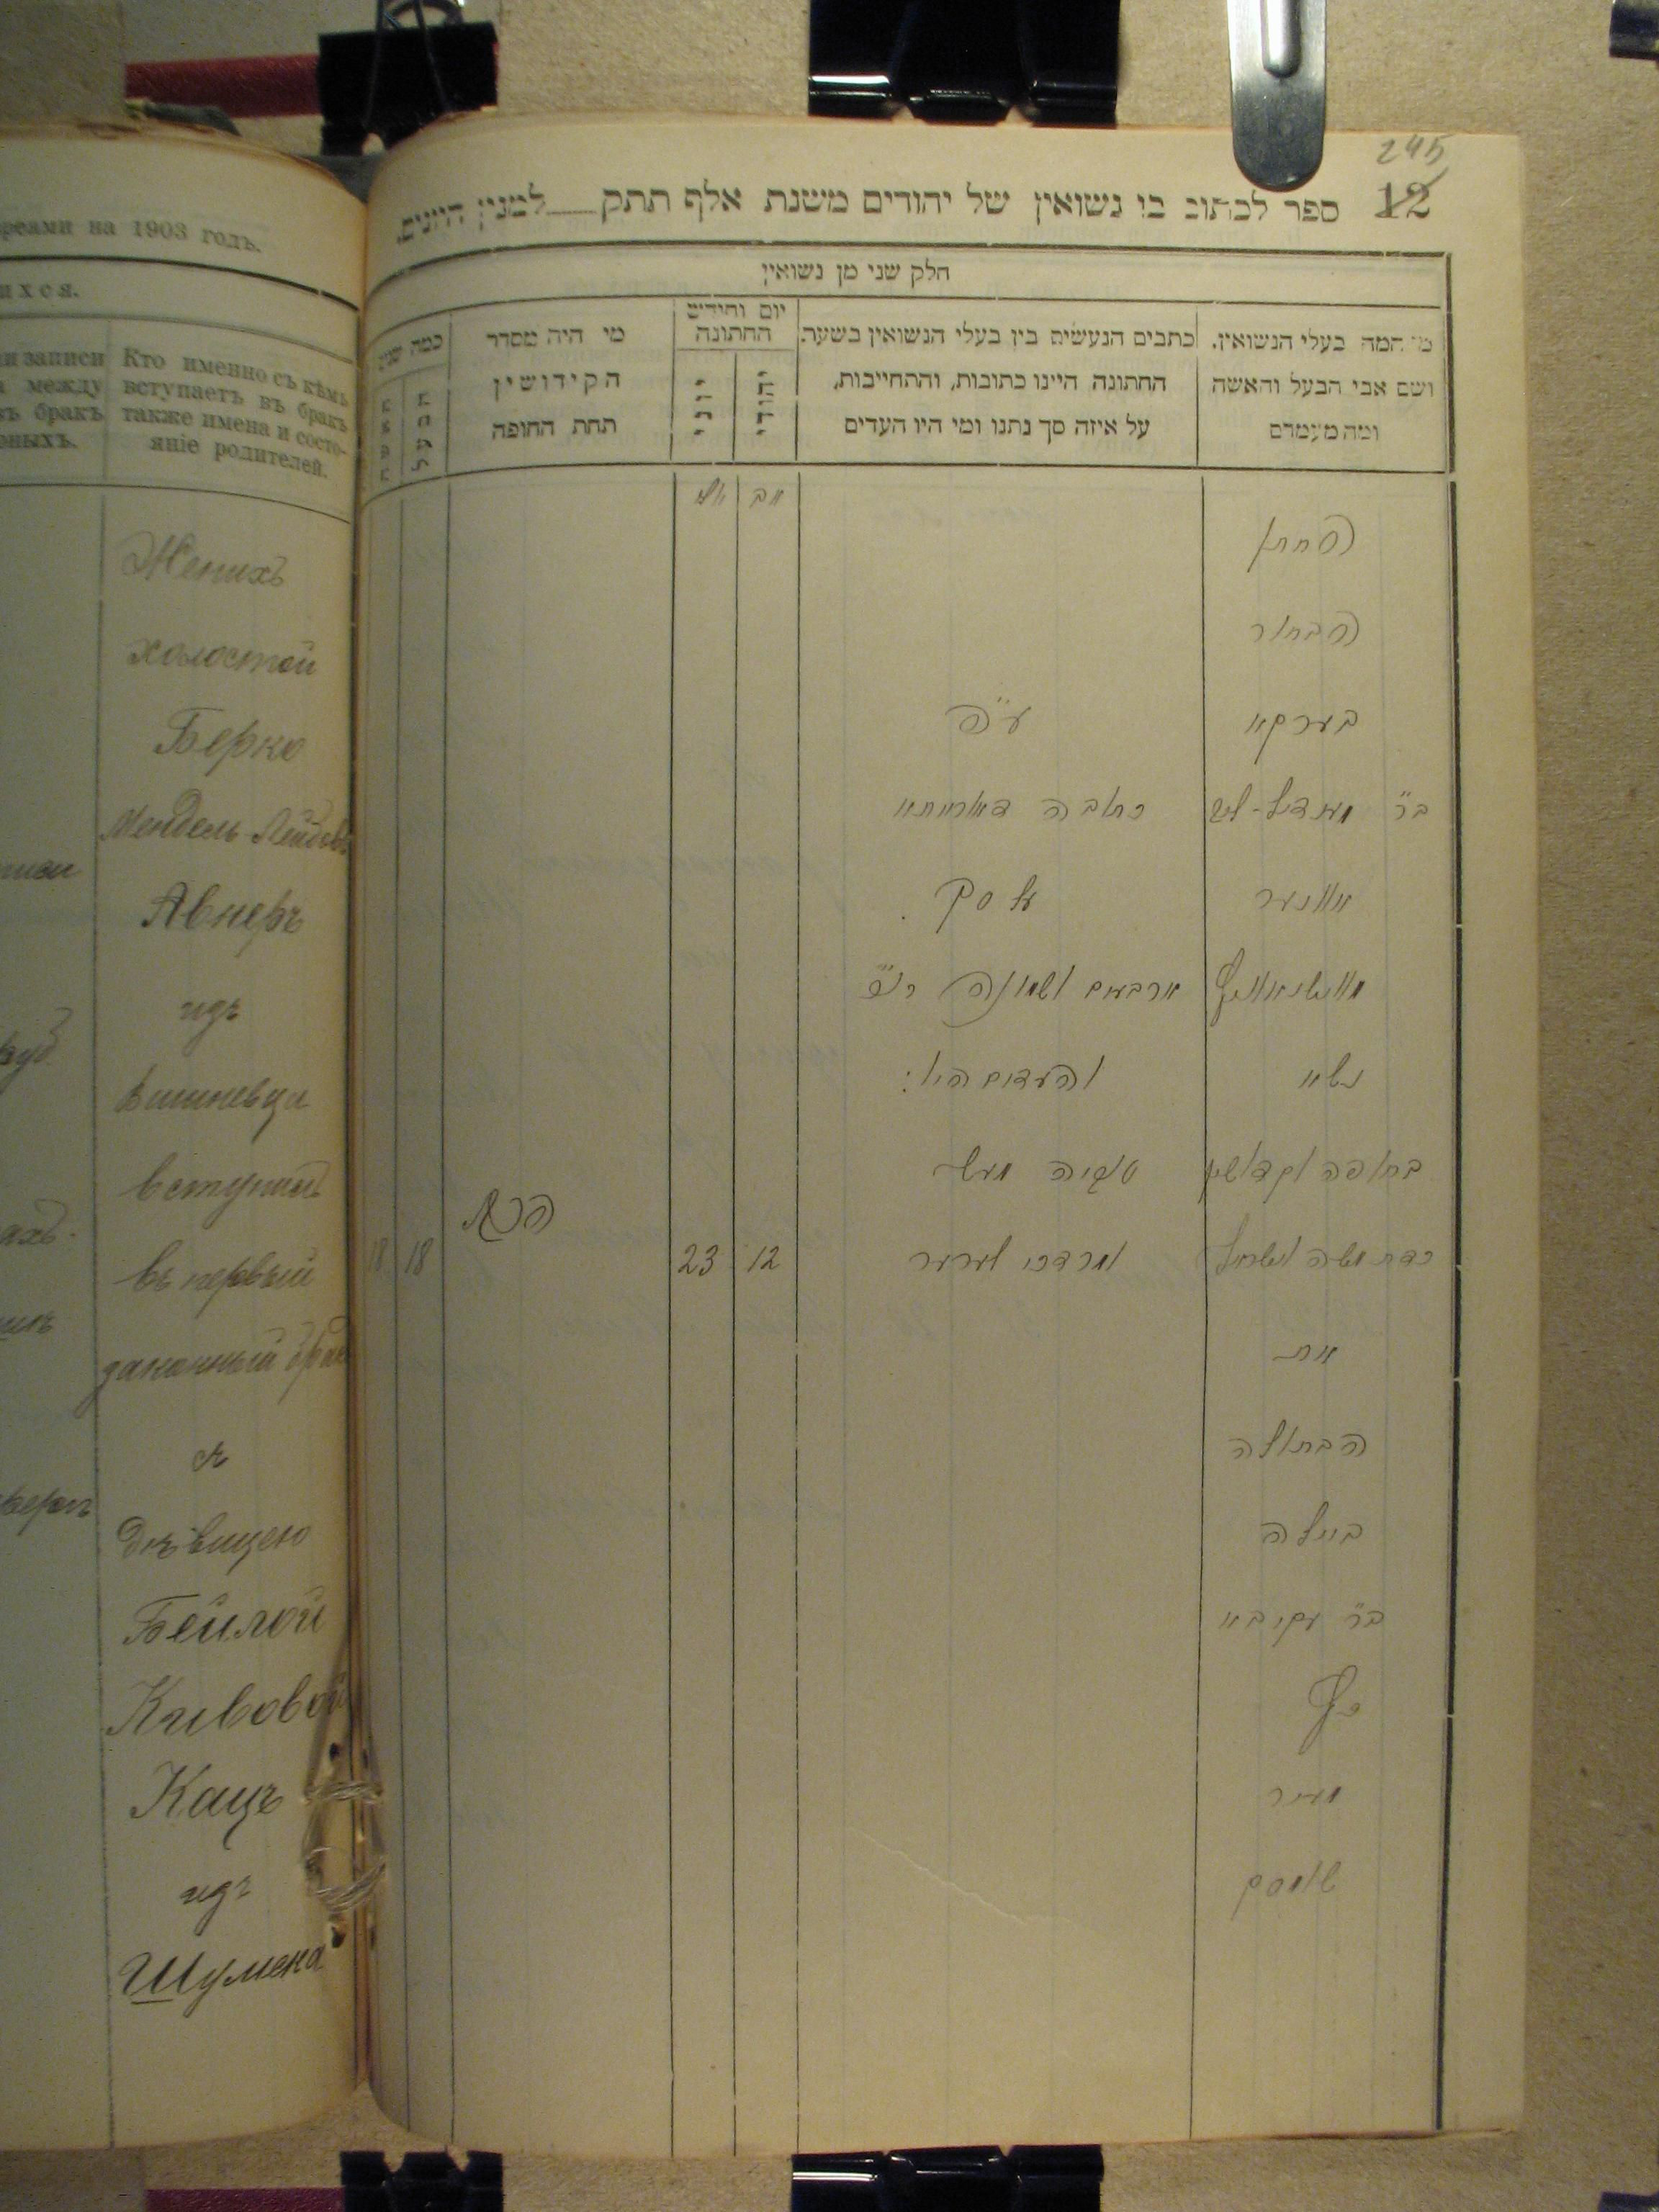 реами на 1903 годъ.
ихся.
ки записи
между
въ бракъ
рныхъ.
Кто именно съ кѣмъ
вступаетъ въ бракъ
также имена и состо-
яніе родителей.
Женихъ
холостой
Берко
Мендель-Лейбовъ
Авнеръ
изъ
Вишневца
вступилъ
въ первый
законный бракъ
съ
дѣвицею
Бейлой
Кивовой
Кацъ
изъ
Шумска
245
12
ספר לכתוב בו נשואין של יהודים משנת אלף תתק למנין היונים.
חלק שני מן נשואין
מי המה בעלי הנשואין.
ושם אבי הבעל והאשה
ומה מעמדם
כתבים הנעשים בין בעלי הנשואין בשעת
החתונה היינו כתובות, והתחייבות,
על איזה סך נתנו ומי היו העדים
יום וחודש
החתונה
יהודי
יוני
מי היה מסדר
הקידושין
תחת החופה
כמה שנים
הבעל
האשה
אב
יולי
החתן
הבחור
בערקא
ב״ר מענדיל-ליב
אוונער
נשא
בחופה וקדושין
כדת משה וישראל
את
הבתולה
ביילה
ב״ר עקיבא
כץ
מעיר
שומסק
ע״ה
כתובה דאריתא
על סך
ארבעים ושמונה
והעדים היו:
מרדכי לערער
12
23
18
18